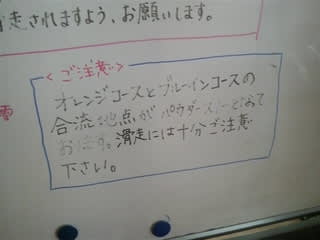 走されますよう、お願いします。
<ご注意>
オレンジコースとブルーインコースの
合流地点がパウダースノーとなって
おります。滑走には十分ご注意
下さい。